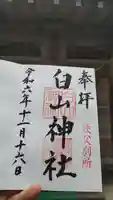 奉拝
秩父別所
白山神社
令和六年十一月十六日